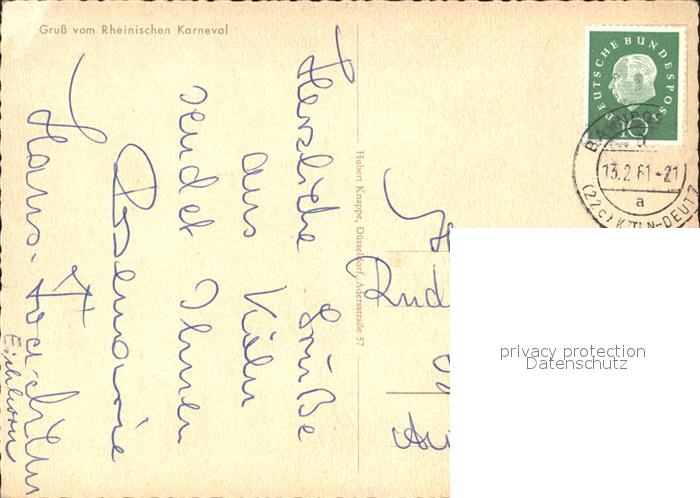 Gruß vom Rheinischen Karneval
Herzliche Grüße
aus Köln
sendet Ihnen
Rosemarie
Hans-Joachim
Eichhorn
Hubert Knappe, Düsseldorf, Adersstraße 57
DEUTSCHE BUNDESPOST
10
BAHNPOST
13.2.61-21
a
(22c) KÖLN-DEUTZ
Rud
privacy protection
Datenschutz